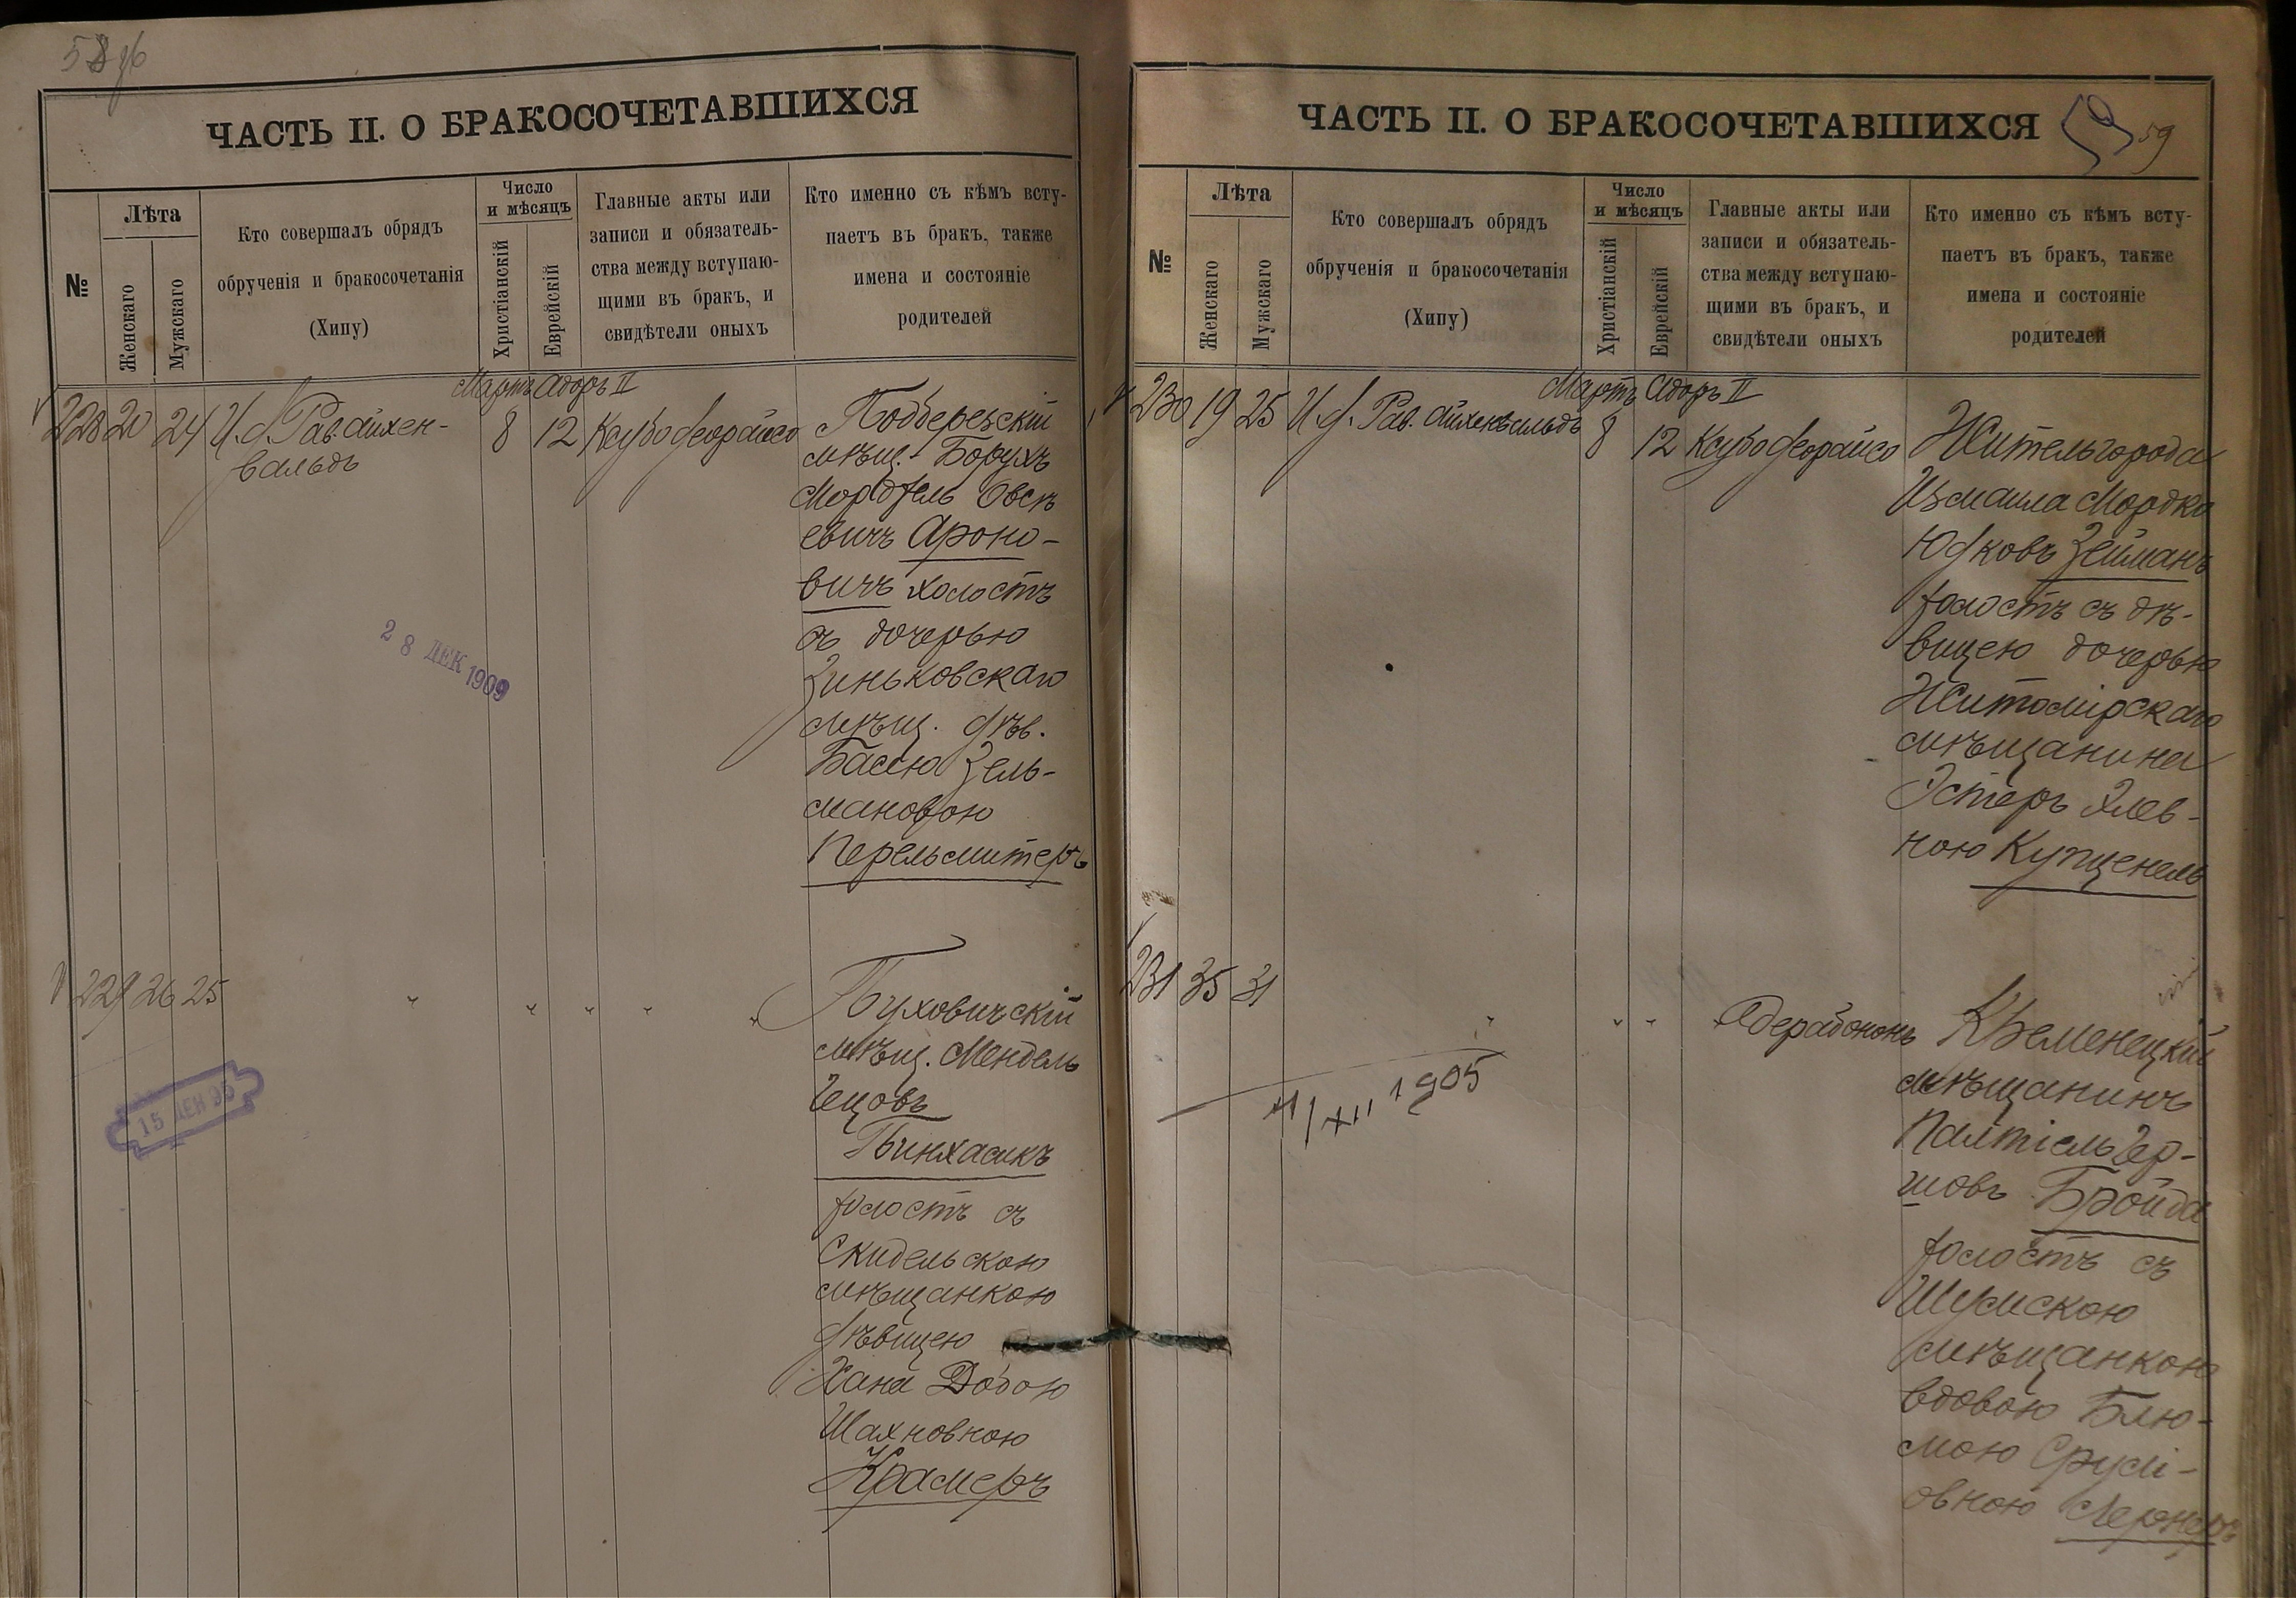 58 об
ЧАСТЬ II. О БРАКОСОЧЕТАВШИХСЯ
№
Лѣта
Женскаго
Мужскаго
Кто совершалъ обрядъ
обрученія и бракосочетанія
(Хипу)
Число
и мѣсяцъ
Христіанскій
Еврейскій
Главные акты или
записи и обязатель-
ства между вступаю-
щими въ бракъ, и
свидѣтели оныхъ
Кто именно съ кѣмъ всту-
паетъ въ бракъ, также
имена и состояніе
родителей
Мартъ Адоръ II
228 20 24 И. д. Рав. Айхен-
вальдъ
8 12 Ксубо деорайсо
Подберезскій
мѣщ. Борухъ
Мордхель Овсѣ
евичъ Ароно-
вичъ холостъ
съ дочерью
Зиньковскаго
мѣщ. дѣв.
Басею Зель-
мановою
Перельмитеръ
28 ДЕК 1909
229 26 25 " " " " "
Пуховичскій
мѣщ. Мендель
Гецовъ
Пинхасикъ
холостъ съ
Скидельскою
мѣщанкою
дѣвицею
Хана Добою
Шахновною
Крамеръ
15 ДЕН 95
ЧАСТЬ II. О БРАКОСОЧЕТАВШИХСЯ
59 59
№
Лѣта
Женскаго
Мужскаго
Кто совершалъ обрядъ
обрученія и бракосочетанія
(Хипу)
Число
и мѣсяцъ
Христіанскій
Еврейскій
Главные акты или
записи и обязатель-
ства между вступаю-
щими въ бракъ, и
свидѣтели оныхъ
Кто именно съ кѣмъ всту-
паетъ въ бракъ, также
имена и состояніе
родителей
Мартъ Адоръ II
230 19 25 И. д. Рав. Айхенвальдъ
8 12 Ксубо деорайсо
Житель города
Измаила Мордко
Юдковъ Зейманъ
холостъ съ дѣ-
вицею дочерью
Житомірскаго
мѣщанина
Эстеръ Хаев-
ною Купценель
231 35 31 " " " Адерабононъ
Кременецкій
мѣщанинъ
Палтіель Гер-
шовъ Бройда
холостъ съ
Шумскою
мѣщанкою
вдовою Блю-
мою Срулі-
овною Лернеръ
XII 1905